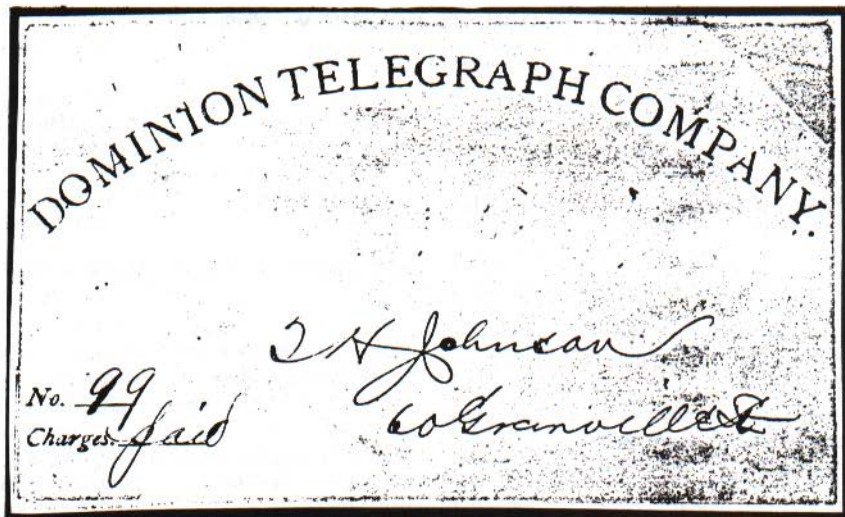 DOMINION TELEGRAPH COMPANY.
H Johnson
No. 99
60 Granville St
Charges. Paid